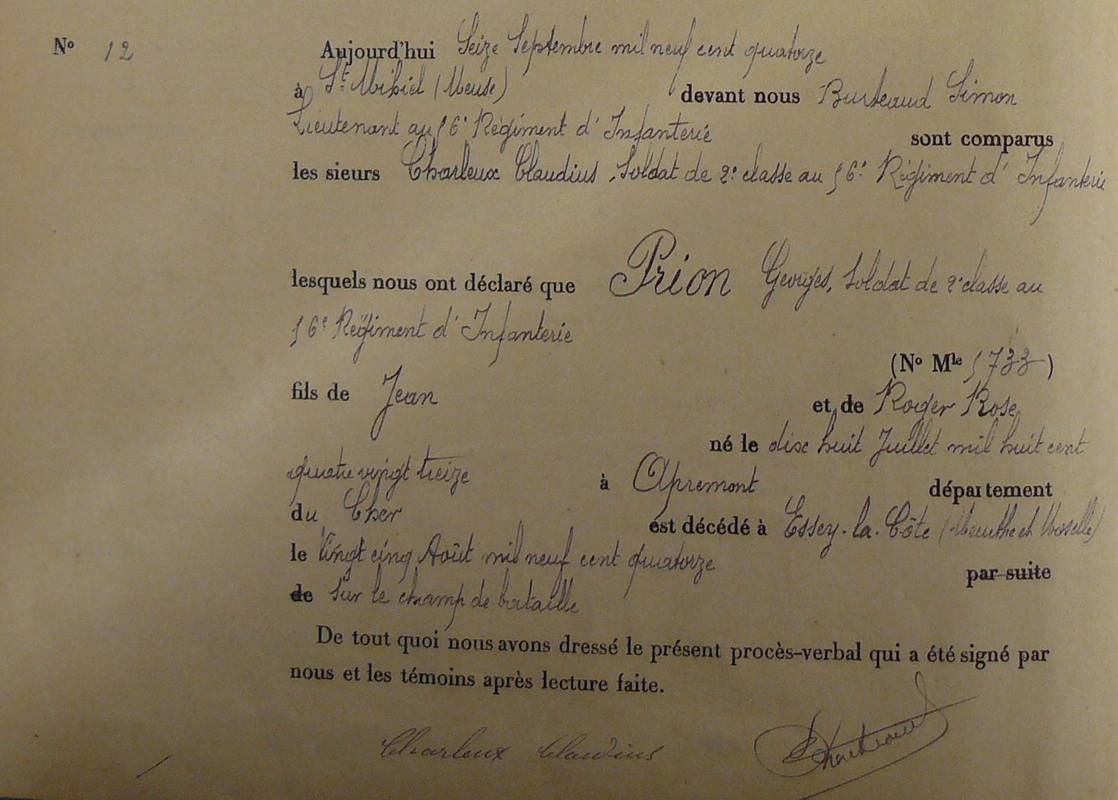 N° 12
Aujourd'hui Seize Septembre mil neuf cent quatorze
à St. Mihiel (Meuse) devant nous Burteaud Simon
Lieutenant au 56e Régiment d'Infanterie sont comparus
les sieurs Charleux Claudius, Soldat de 2e classe au 56e Régiment d'Infanterie
lesquels nous ont déclaré que Prion Georges, Soldat de 2e classe au
56e Régiment d'Infanterie
(N° Mle 5733)
fils de Jean et de Roger Rose
né le disc huit Juillet mil huit cent
quatre vingt treize à Apremont département
du Cher est décédé à Essey-la-Côte (Meurthe et Moselle)
le Vingt cinq Août mil neuf cent quatorze par suite
de sur le champ de bataille
De tout quoi nous avons dressé le présent procès-verbal qui a été signé par
nous et les témoins après lecture faite.
Charleux Claudius